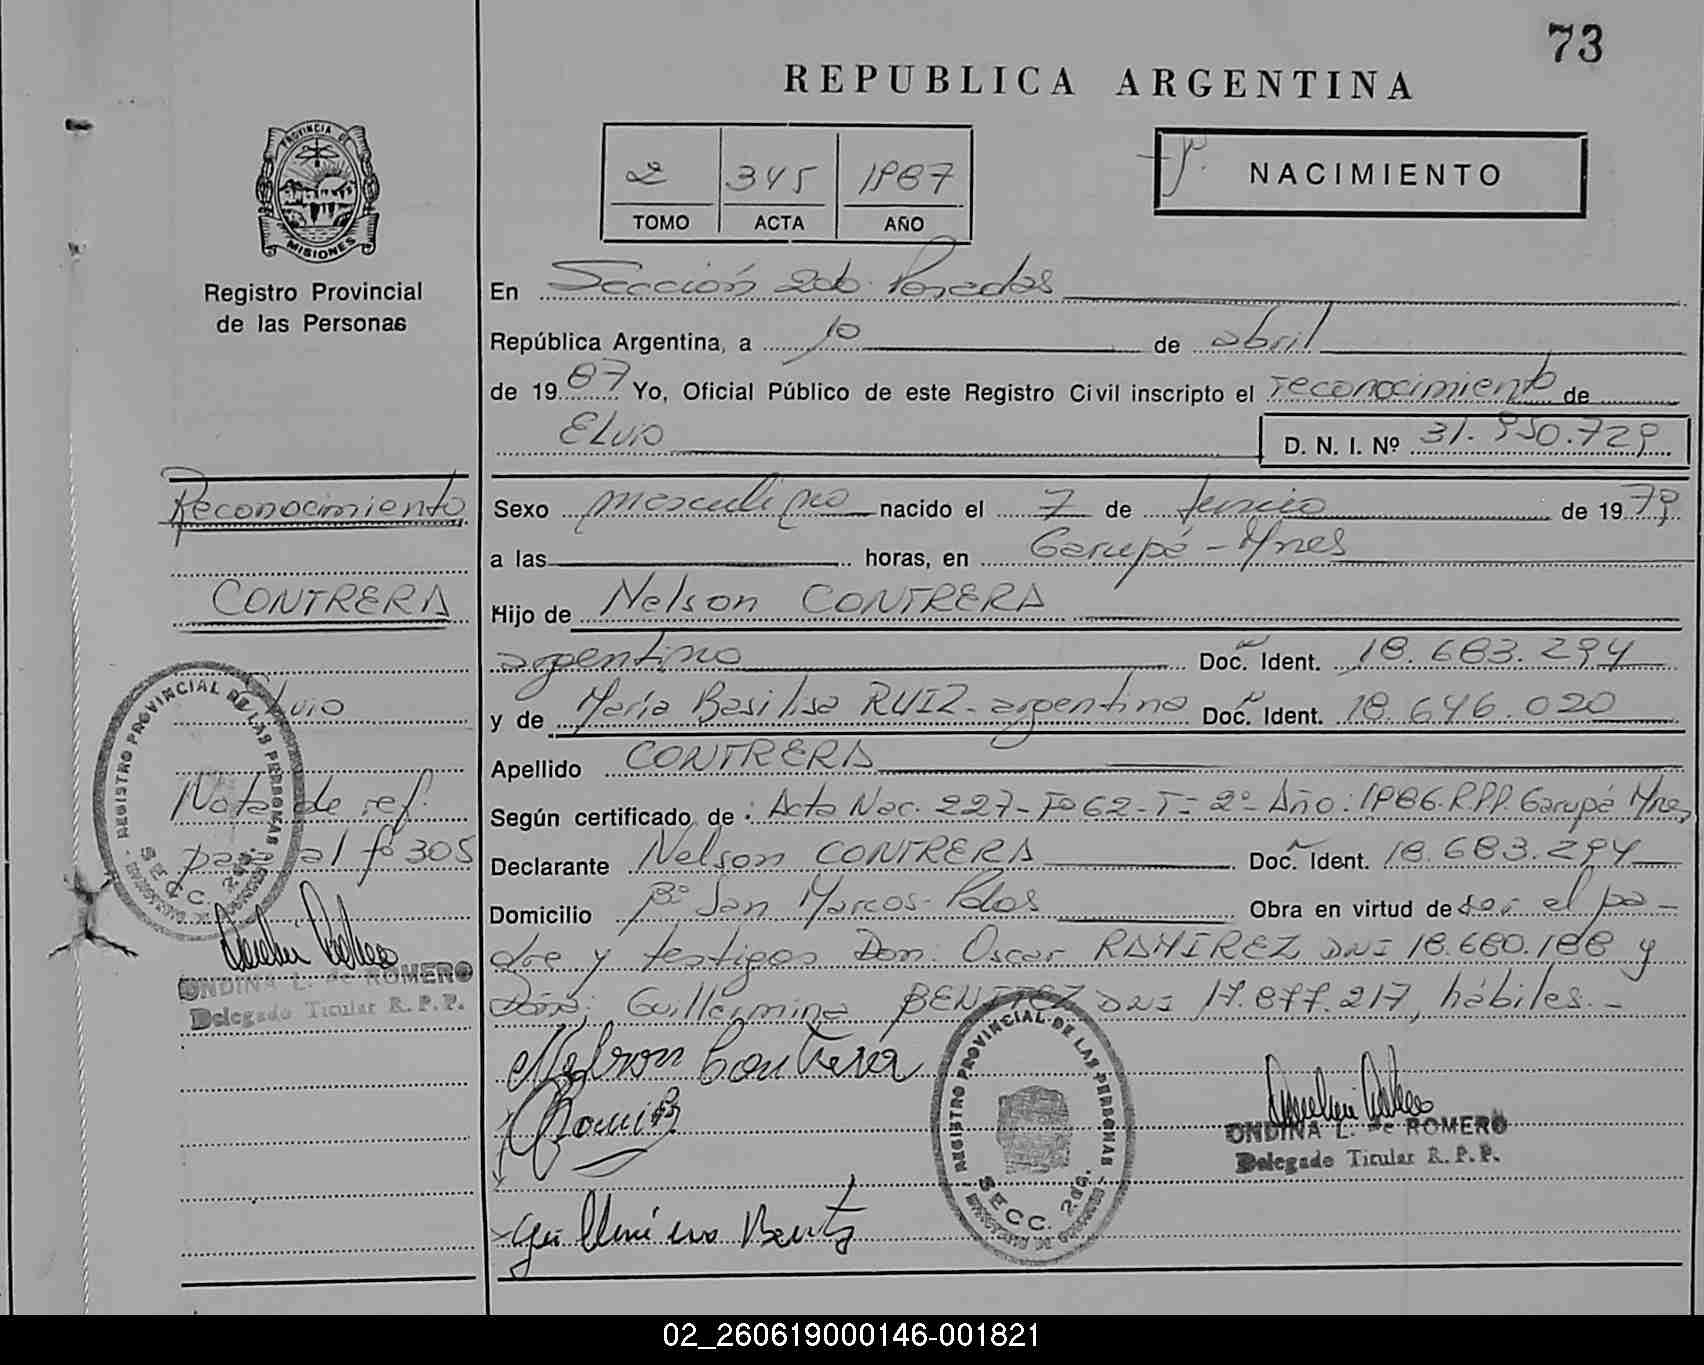 73
REPUBLICA ARGENTINA
2 345 1987
TOMO ACTA AÑO
NACIMIENTO
PROVINCIA DE
MISIONES
Registro Provincial
de las Personas
En Sección 2da. Posadas
República Argentina, a 10 de abril
de 1987 Yo, Oficial Público de este Registro Civil inscripto el reconocimiento de
ELVIO D. N. I. Nº 31.950.729
Sexo masculino nacido el 7 de junio de 1979
a las horas, en Garupá - Mnes
Hijo de Nelson CONTRERA
argentino Doc. Ident. 18.683.294
y de María Basilisa RUIZ - argentina Doc. Ident. 18.646.020
Apellido CONTRERA
Según certificado de: Acta Nac. 227 - Fº 62 - T= 2º - Año: 1986. R.P.P. Garupá Mnes
Declarante Nelson CONTRERA Doc. Ident. 18.683.294
Domicilio Bº San Marcos - Pdas Obra en virtud de ser el pa-
dre y testigos Don: Oscar RAMIREZ DNI 18.680.188 y
Doña: Guillermina BENITEZ DNI 17.877.217, hábiles.-
Nelson Contrera
Guillermina
REGISTRO PROVINCIAL DE LAS PERSONAS
SECC. 2da.
ONDINA L. de ROMERO
Delegado Titular R. P. P.
Reconocimiento
CONTRERA
Elvio
Nota de ref.
para al fº 305
REGISTRO PROVINCIAL DE LAS PERSONAS
SECC. 2da.
ONDINA L. de ROMERO
Delegado Titular R. P. P.
02_260619000146-001821